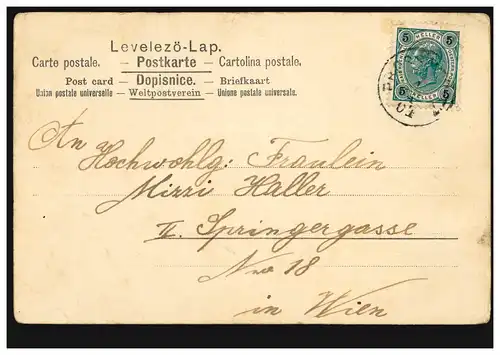 Levelezö-Lap.
Carte postale. — Postkarte — Cartolina postale.
Post card — Dopisnice. — Briefkaart
Union postale universelle — Weltpostverein — Unione postale universale.
5 HELLER 5
5 HELLER 5
01
An
Hochwohlg: Fräulein
Mizzi Haller
II. Springergasse
Nro 18
in Wien